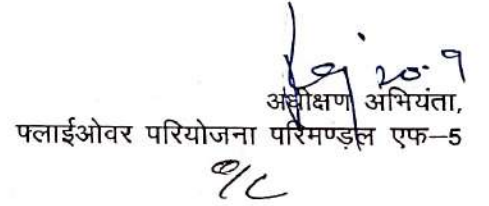 20.9
अधीक्षण अभियंता,
फ्लाईओवर परियोजना परिमण्डल एफ–5
o/c